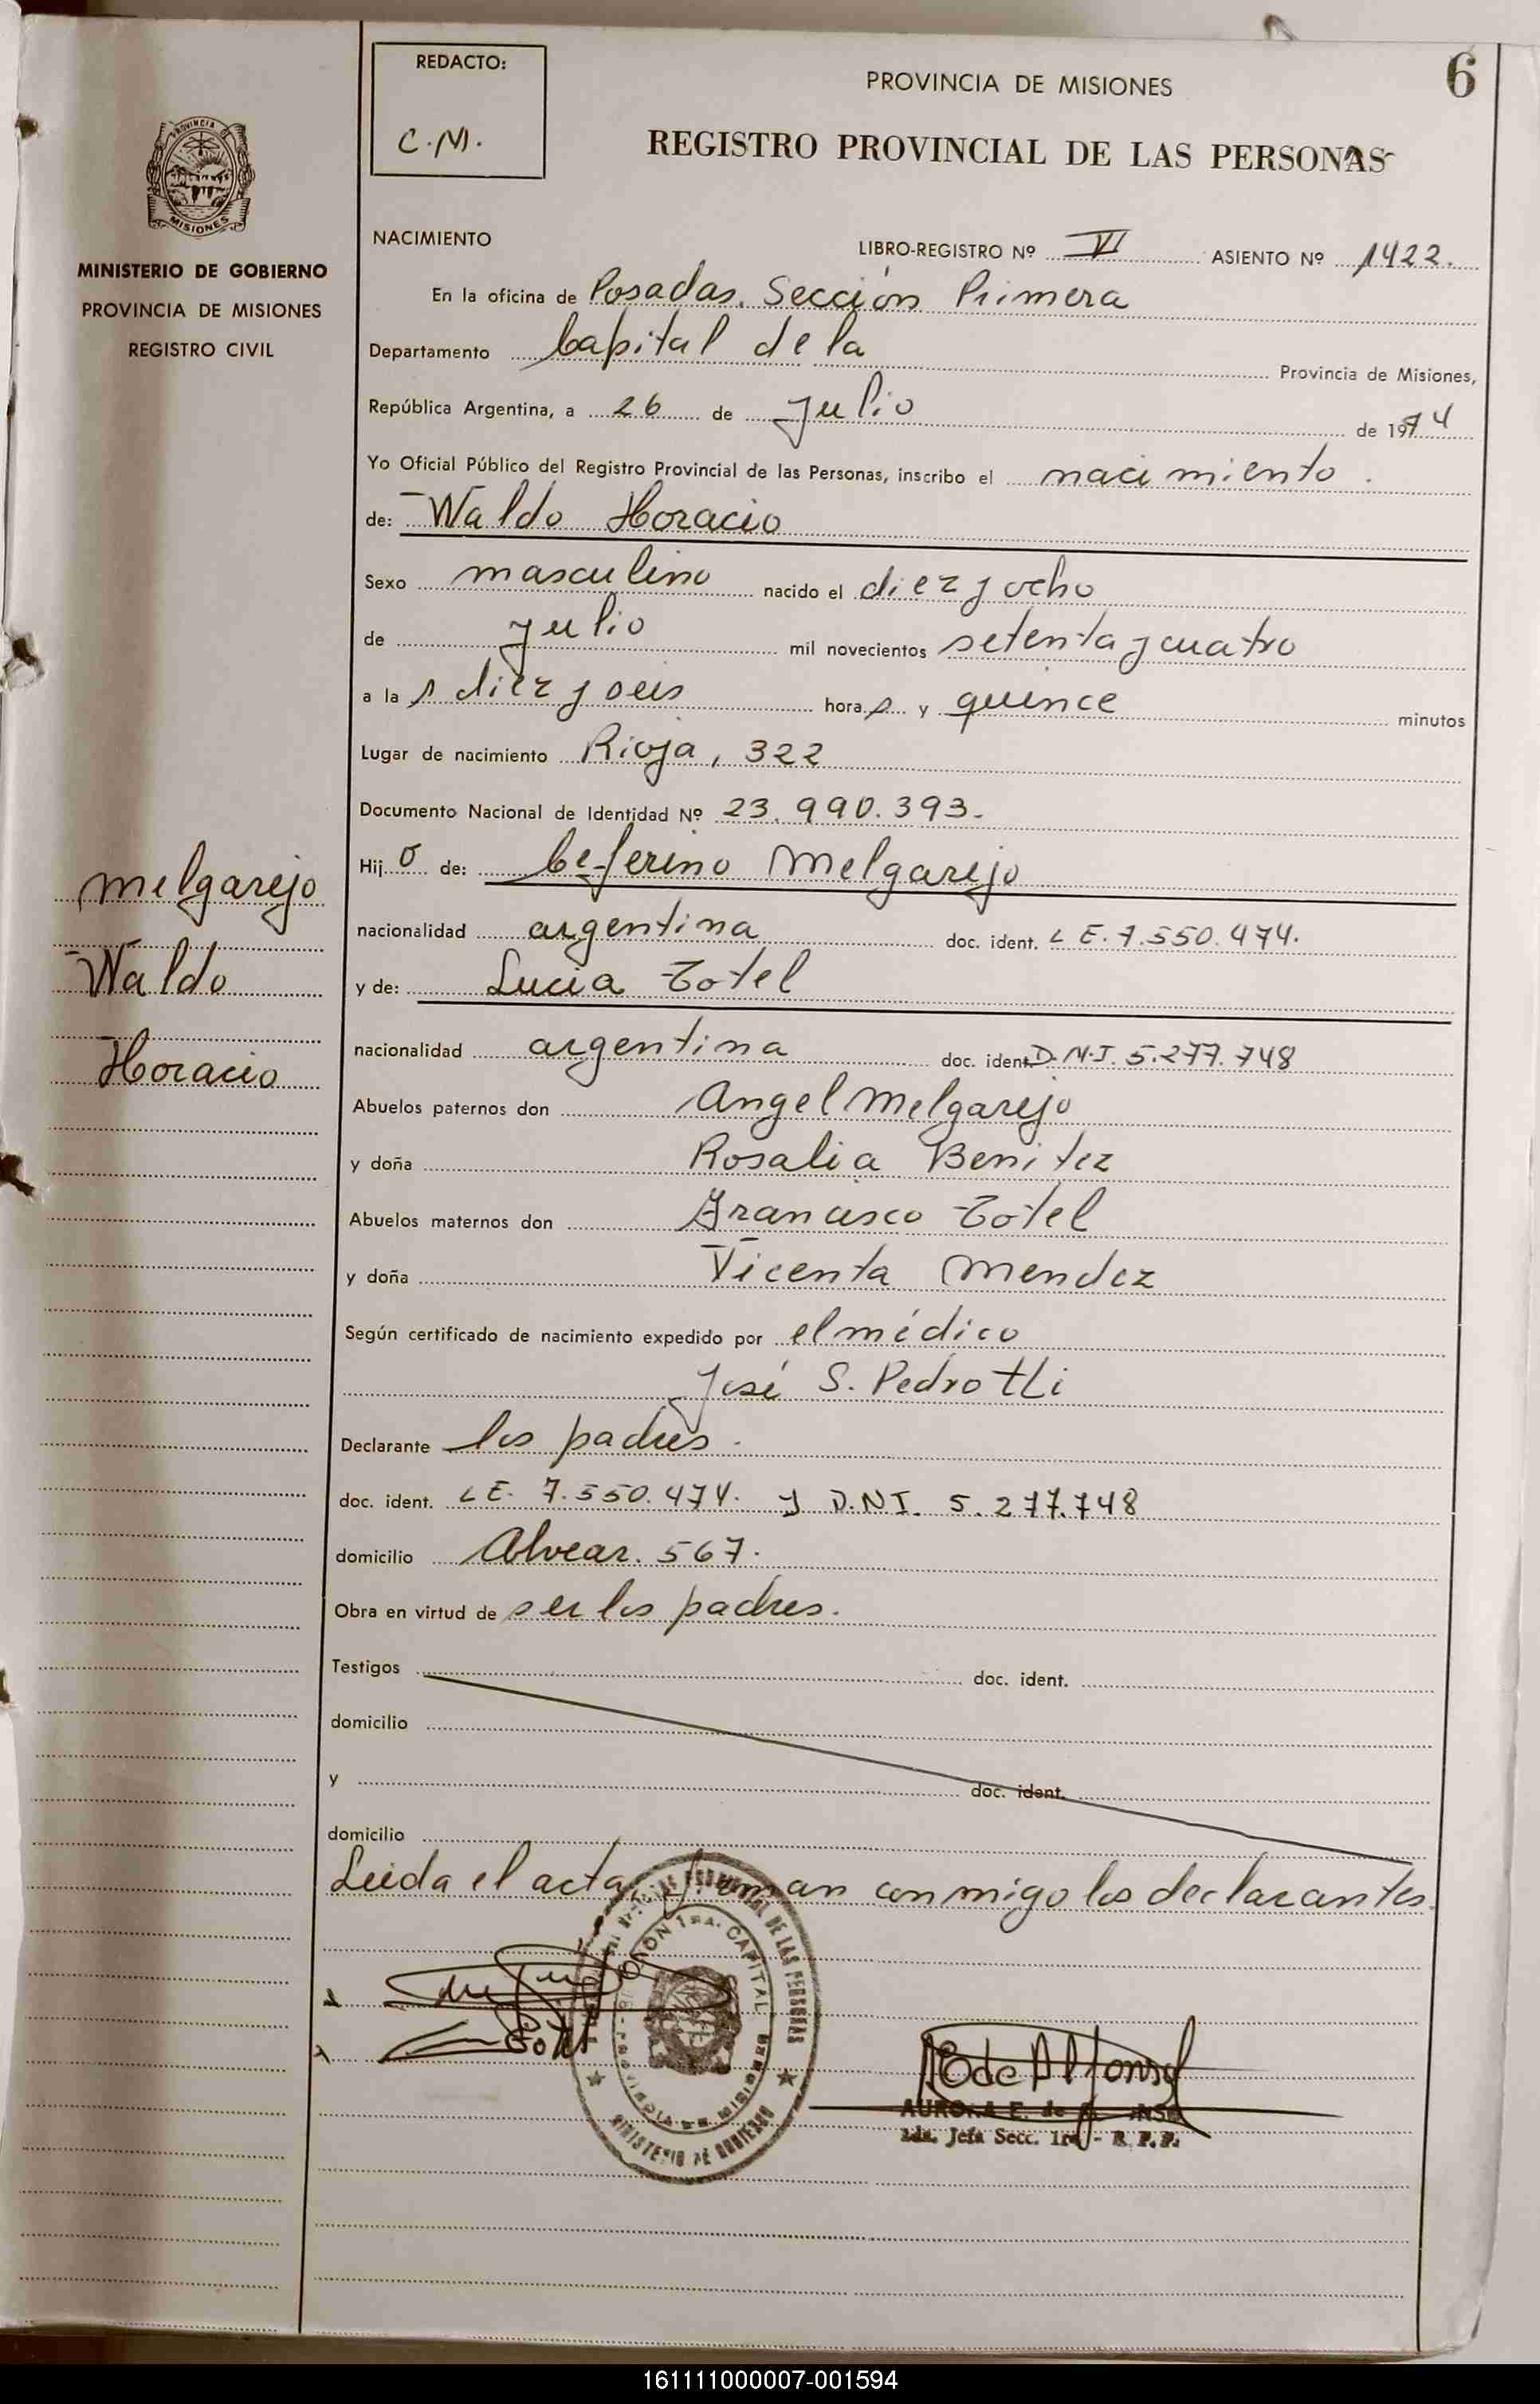 REDACTO:
C.M.
6
PROVINCIA DE MISIONES
REGISTRO PROVINCIAL DE LAS PERSONAS
PROVINCIA
MISIONES
MINISTERIO DE GOBIERNO
PROVINCIA DE MISIONES
REGISTRO CIVIL
NACIMIENTO
LIBRO-REGISTRO Nº VI ASIENTO Nº 1422.
En la oficina de Posadas. Sección Primera
Departamento Capital de la Provincia de Misiones,
República Argentina, a 26 de julio de 1974
Yo Oficial Público del Registro Provincial de las Personas, inscribo el nacimiento.
de: Waldo Horacio
Sexo masculino nacido el diez y ocho
de julio mil novecientos setenta y cuatro
a la s diez y seis hora s y quince minutos
Lugar de nacimiento Rioja, 322
Documento Nacional de Identidad Nº 23.990.393.
Hij o de: Ceferino Melgarejo
nacionalidad argentina doc. ident. L E. 7.550.474.
y de: Lucia Totel
nacionalidad argentina doc. ident. D.N.I. 5.277.748
Abuelos paternos don Angel Melgarejo
y doña Rosalia Benitez
Abuelos maternos don Francisco Totel
y doña Vicenta Mendez
Según certificado de nacimiento expedido por el médico
José S. Pedrotti
Declarante los padres.
doc. ident. L E. 7.550.474. y D.N.I. 5.277.748
domicilio Alvear. 567.
Obra en virtud de ser los padres.
Testigos doc. ident.
domicilio
y doc. ident.
domicilio
Leida el acta firman conmigo los declarantes.
Melgarejo
Waldo
Horacio
Totel
DE LAS PERSONAS
1RA. CAPITAL
MINISTERIO DE GOBIERNO
AURORA E. de
Jefa Secc. 1ra - R.P.P.
161111000007-001594